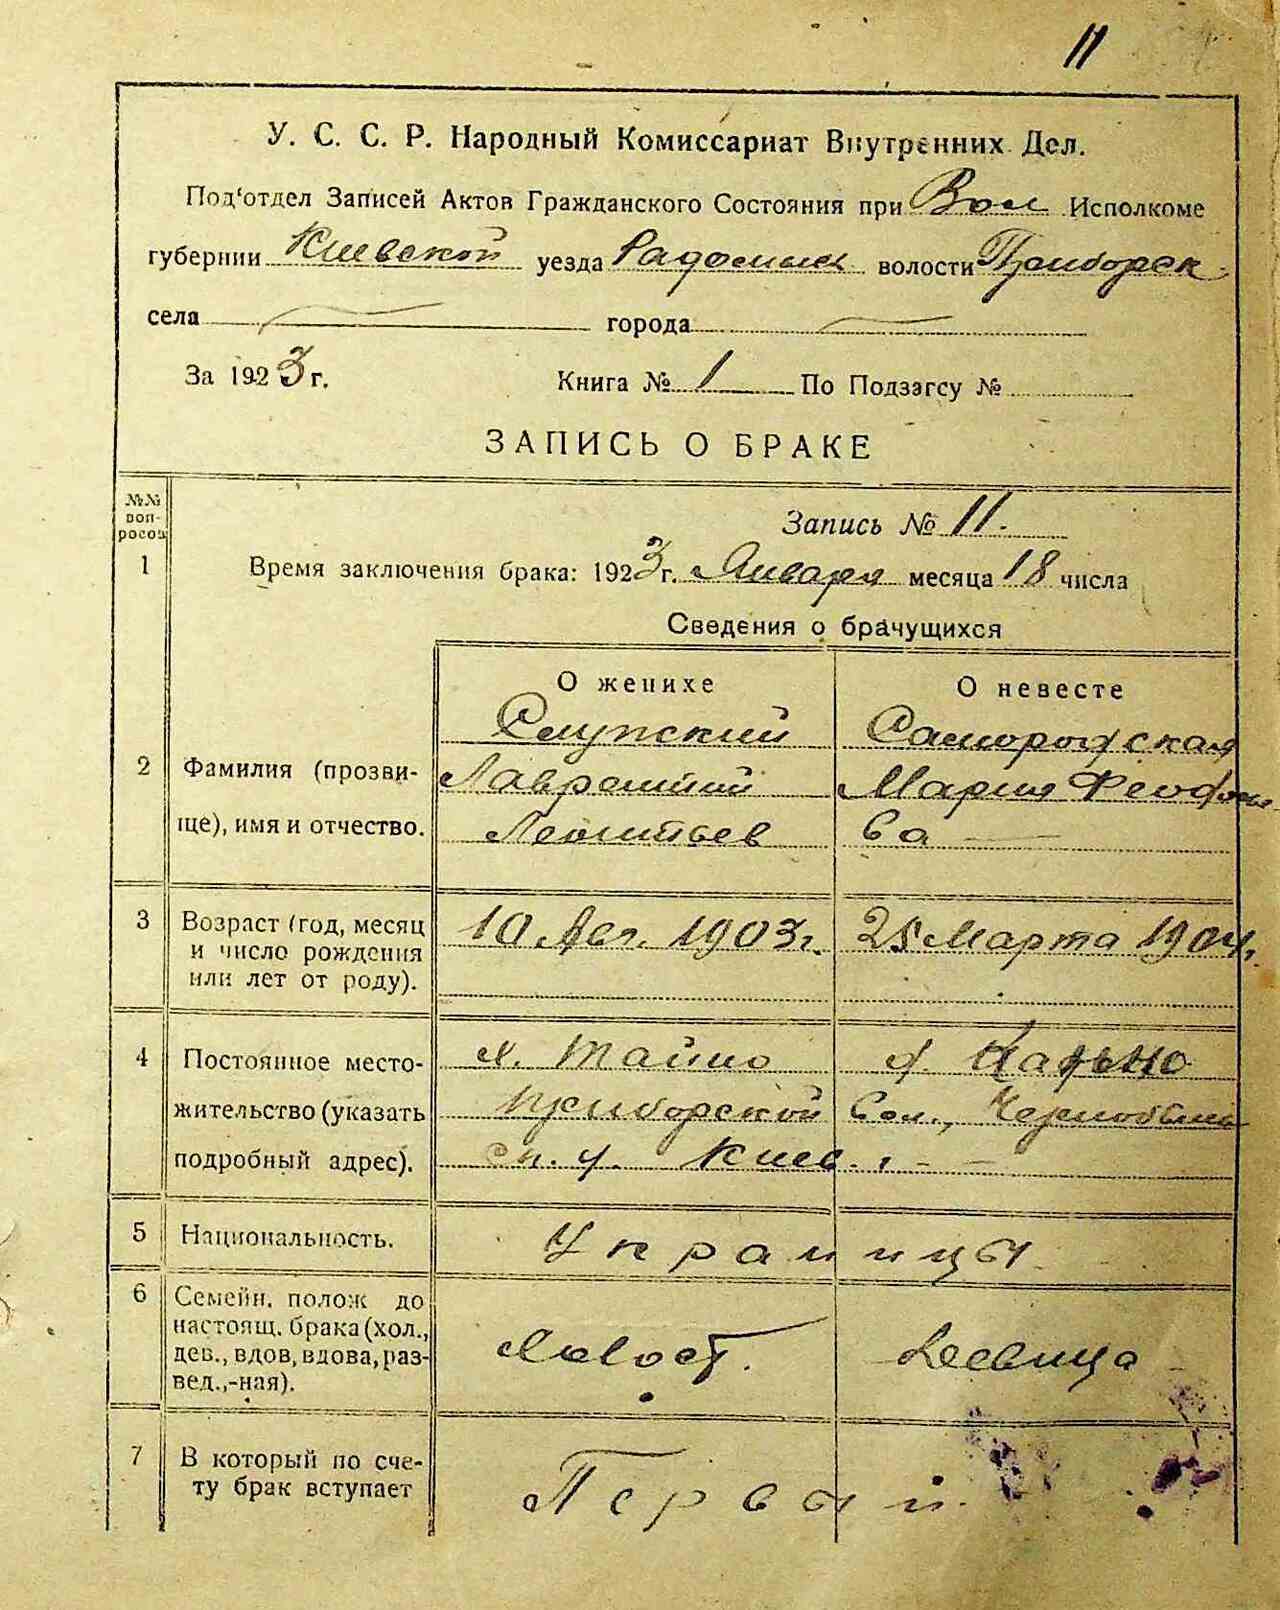 11
У. С. С. Р. Народный Комиссариат Внутренних Дел.
Под'отдел Записей Актов Гражданского Состояния при Вол Исполкоме
губернии Киевской уезда Радомысл волости Приборск
села города
За 1923 г. Книга № 1 По Подзагсу №
ЗАПИСЬ О БРАКЕ
№№ вопросов
Запись № 11.
1 Время заключения брака: 1923 г. Января месяца 18 числа
Сведения о брачущихся
О женихе О невесте
2 Фамилия (прозви-
ще), имя и отчество.
Слупский
Лаврентий
Леонтьев
Мария Феофано
ва
3 Возраст (год, месяц
и число рождения
или лет от роду).
10 Авг. 1903 г. 25 Марта 1904 г.
4 Постоянное место-
жительство (указать
подробный адрес).
Приборской Вол., Чернобыль
ск. у. Киев. г.
5 Национальность. Украинцы
6 Семейн. полож до
настоящ. брака (хол.,
дев., вдов, вдова, раз-
вед.,-ная).
Холост. Девица
7 В который по сче-
ту брак вступает
Первый.